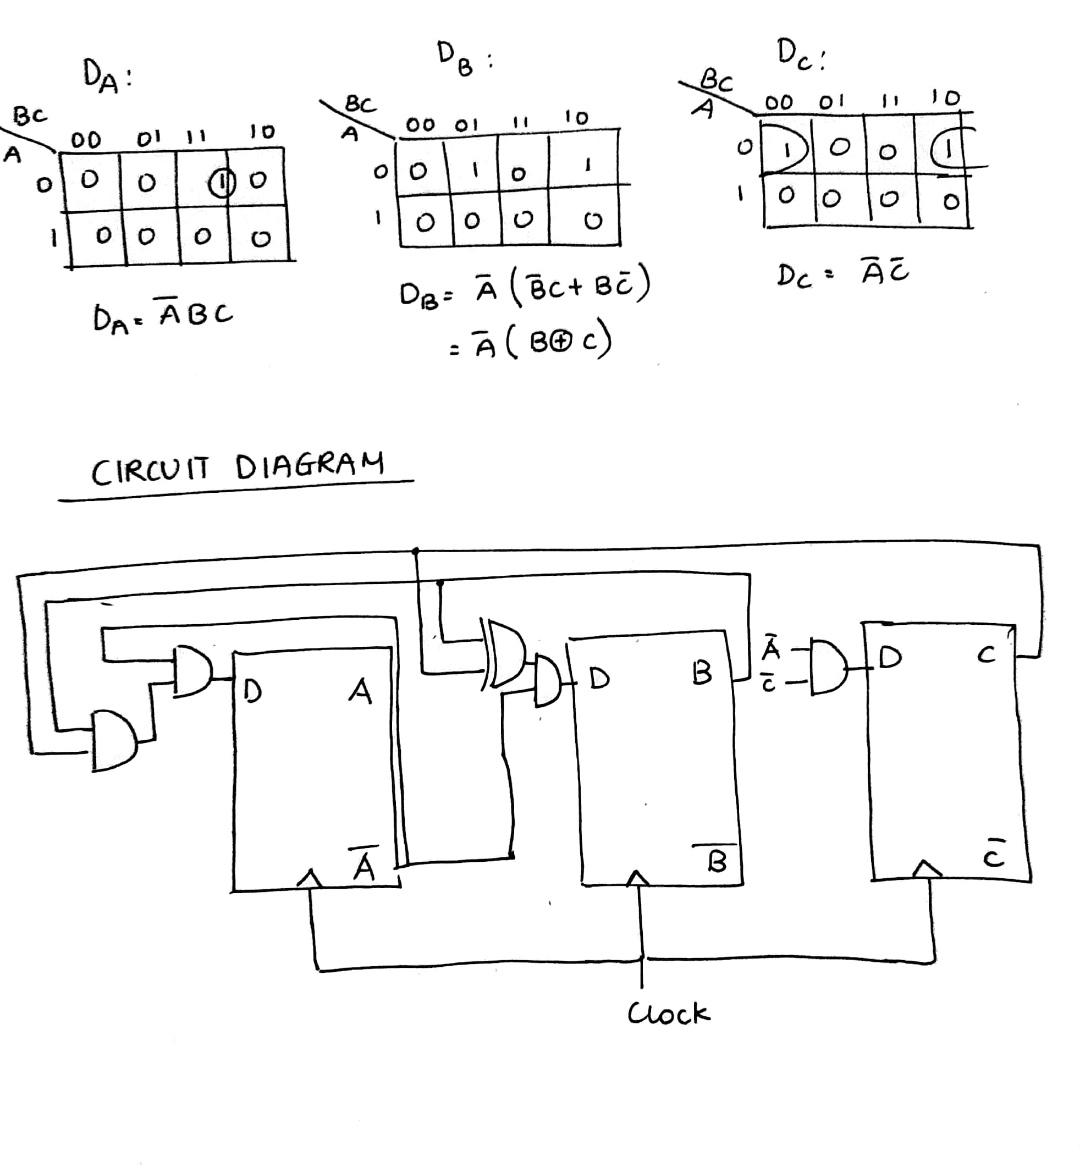 D_A:
D_B:
D_C:
BC
A
00 01 11 10
0 0 0 1 0
1 0 0 0 0
BC
A
00 01 11 10
0 0 1 0 1
1 0 0 0 0
BC
A
00 01 11 10
0 1 0 0 1
1 0 0 0 0
D_A = A̅BC
D_B = A̅(B̅C + BC̅)
= A̅(B⊕C)
D_C = A̅C̅
CIRCUIT DIAGRAM
D A
A̅
D B
B̅
A̅
C̅
D C
C̅
Clock